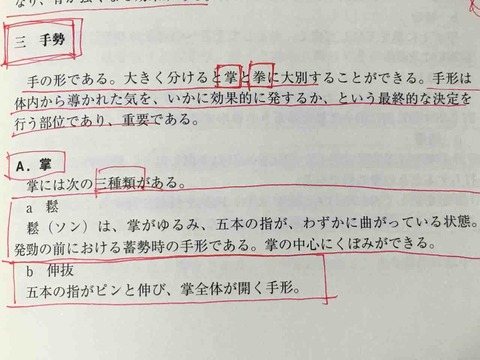 三 手勢
手の形である。大きく分けると掌と拳に大別することができる。手形は
体内から導かれた気を、いかに効果的に発するか、という最終的な決定を
行う部位であり、重要である。
A．掌
掌には次の三種類がある。
a 鬆
鬆（ソン）は、掌がゆるみ、五本の指が、わずかに曲がっている状態。
発勁の前における蓄勢時の手形である。掌の中心にくぼみができる。
b 伸抜
五本の指がピンと伸び、掌全体が開く手形。